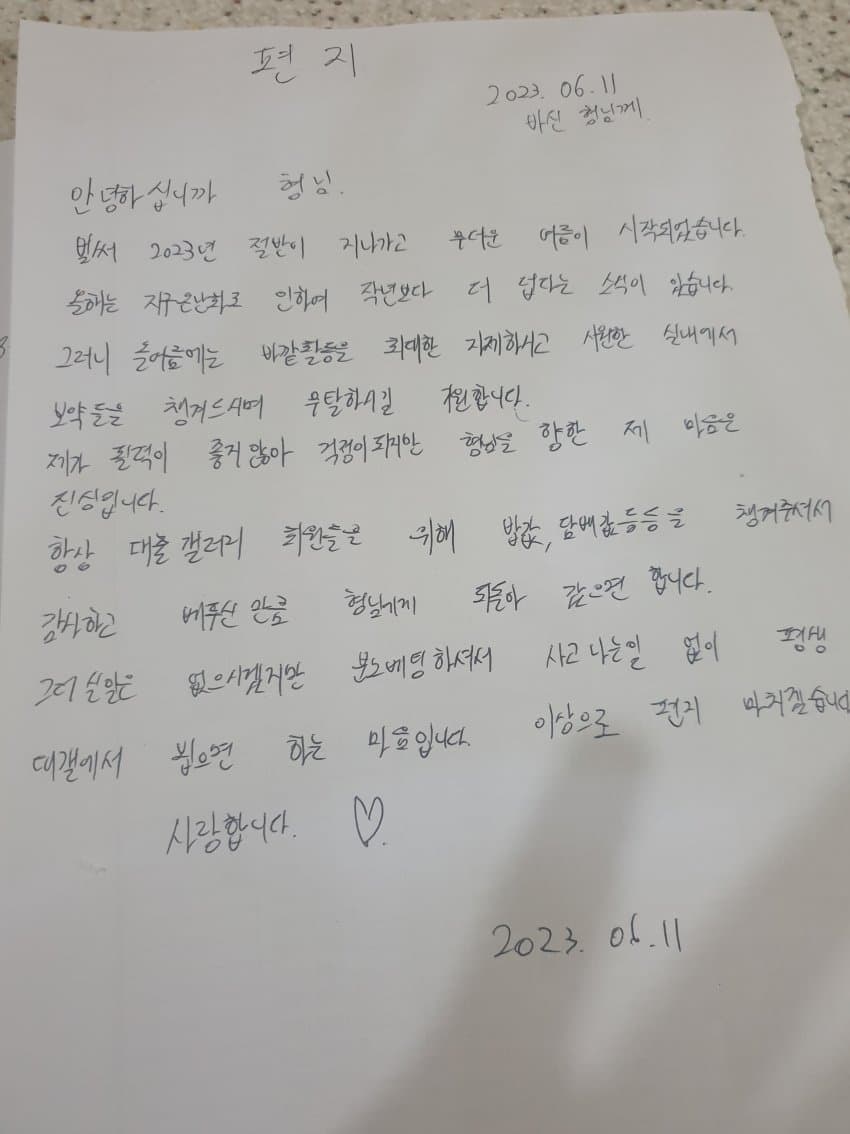 편 지
2023. 06. 11
바신 형님께.
안녕하십니까 형님.
벌써 2023년 절반이 지나가고 무더운 여름이 시작되었습니다.
올해는 지구온난화로 인하여 작년보다 더 덥다는 소식이 있습니다.
그러니 올여름에는 바깥활동을 최대한 자제하시고 시원한 실내에서
보약들을 챙겨드시며 무탈하시길 기원합니다.
제가 필력이 좋지않아 걱정이되지만 형님을 향한 제 마음은
진심입니다.
항상 대출갤러리 회원들을 위해 밥값, 담배값등등을 챙겨주셔서
감사하고 베푸신만큼 형님에게 되돌아 갔으면 합니다.
그러실일은 없으시겠지만 분노베팅하셔서 사고나는일 없이 평생
대갤에서 뵙으면 하는 마음입니다. 이상으로 편지 마치겠습니다
사랑합니다. ♡.
2023. 06. 11